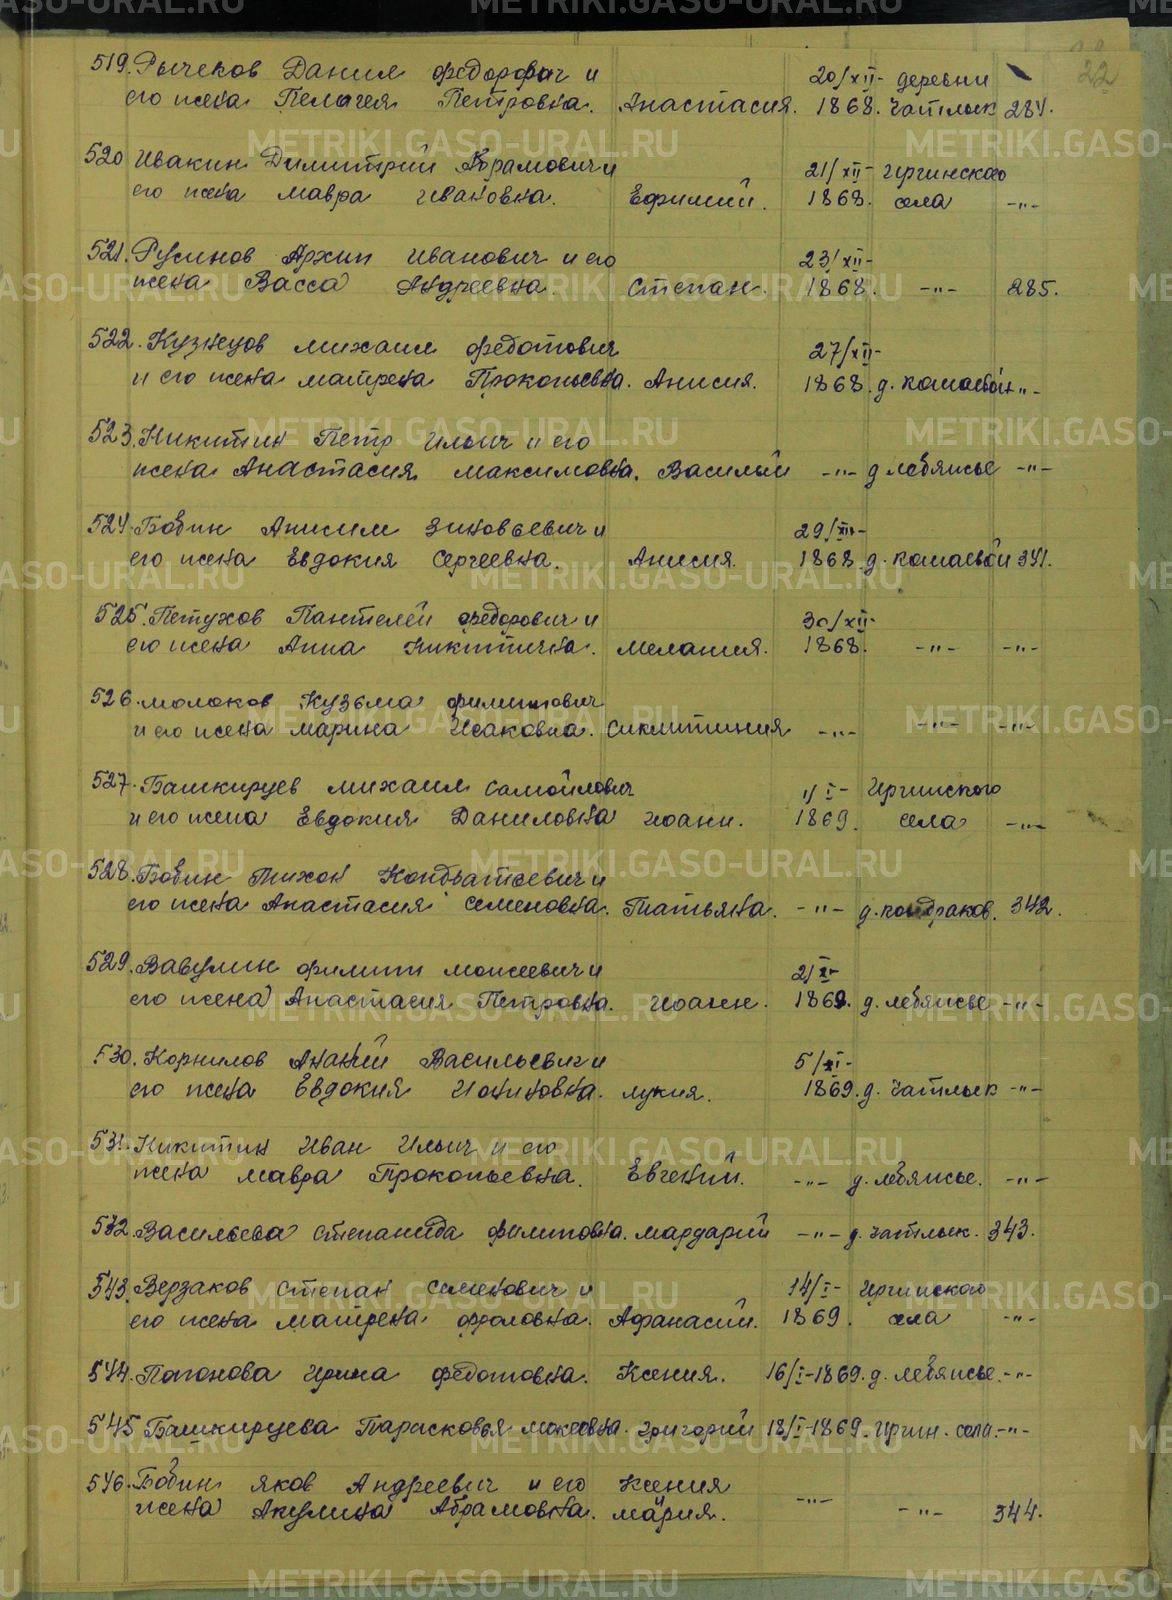 22
519. Рычков Данил Федорович и 20/XII- деревни
его жена Пелагея Петровна. Анастасия. 1868. Чатлык 284.
520 Ивакин Димитрий Абрамович и 21/XII- Иргинского
его жена Мавра Ивановна. Ефимий. 1868. села -"-
521. Русинов Архип Иванович и его 23/XII-
жена Васса Андреевна. Степан. 1868. -"- 285.
522. Кузнецов Михаил Федотович 27/XII-
и его жена Матрена Прокопьевна. Анисия. 1868. д. Камаевой -"-
523. Никитин Петр Ильич и его
жена Анастасия Максимовна. Василий -"- д. Лебяжье -"-
524. Бобин Анисим Зиновьевич и 29/XII-
его жена Евдокия Сергеевна. Анисия. 1868. д. Камаевой 341.
525. Петухов Пантелей Федорович и 30/XII-
его жена Анна Никитична. Мелания. 1868. -"- -"-
526. Молоков Кузьма Филиппович
и его жена Марина Исаковна. Сиклитиния -"- -"- -"-
527. Башкирцев Михаил Самойлович 1/I- Иргинского
и его жена Евдокия Даниловна Иоанн. 1869. села -"-
528. Бобин Тихон Кондратьевич и
его жена Анастасия Семеновна. Татьяна. -"- д. Кондраков. 342.
529. Вавулин Филипп Моисеевич и 2/I-
его жена Анастасия Петровна. Иоанн. 1869. д. Лебяжье -"-
530. Корнилов Ананий Васильевич и 5/I-
его жена Евдокия Лукия. 1869. д. Чатлык -"-
531. Никитин Иван Ильич и его
жена Мавра Прокопьевна. Евгений. -"- д. Лебяжье. -"-
532. Васильева Степанида Филиповна. Мардарий -"- д. Чатлык. 343.
543. Верзаков Степан Семенович и 14/I- Иргинского
его жена Матрена Фроловна. Афанасий. 1869. села -"-
544. Патокова Ирина Федотовна. Ксения. 16/I-1869. д. Лебяжье. -"-
545 Башкирцева Парасковья Мокеевна. Григорий 18/I-1869. Иргин. села. -"-
546. Бобин Яков Андреевич и его Ксения
жена Акулина Абрамовна. Мария. -"- -"- 344.
METRIKI.GASO-URAL.RU